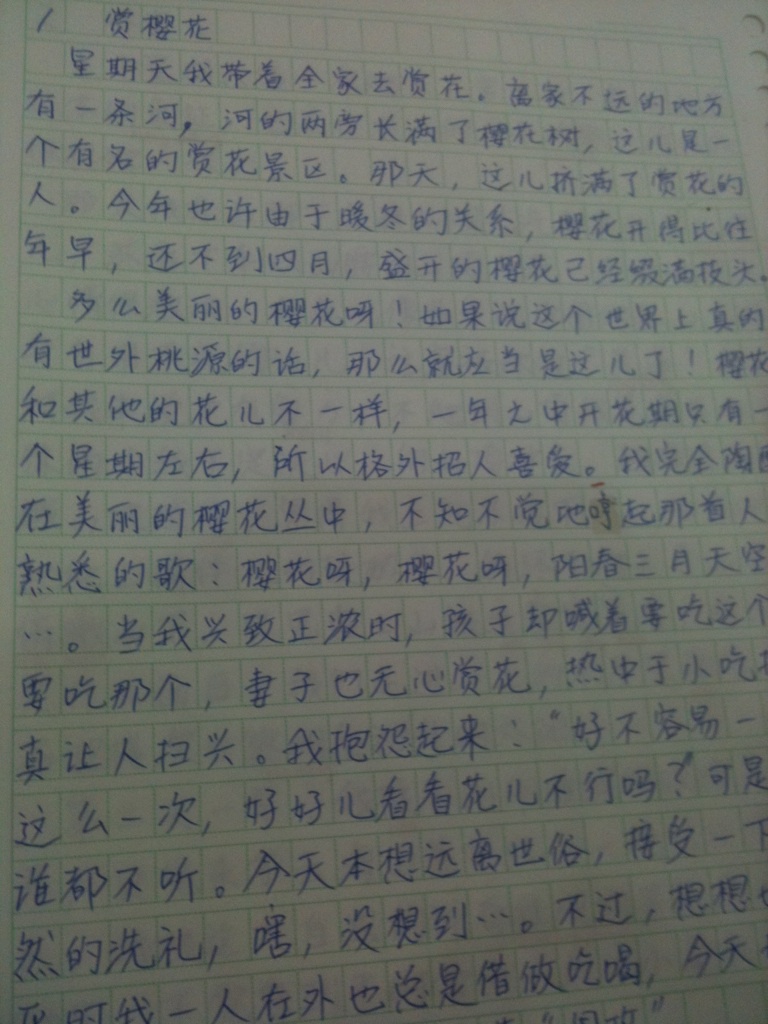 1 赏樱花
星期天我带着全家去赏花。离家不远的地方
有一条河，河的两旁长满了樱花树，这儿是一
个有名的赏花景区。那天，这儿挤满了赏花的
人。今年也许由于暖冬的关系，樱花开得比往
年早，还不到四月，盛开的樱花已经缀满枝头。
多么美丽的樱花呀！如果说这个世界上真的
有世外桃源的话，那么就应当是这儿了！樱花
和其他的花儿不一样，一年之中开花期只有一
个星期左右，所以格外招人喜爱。我完全陶醉
在美丽的樱花丛中，不知不觉地哼起那首人
熟悉的歌：樱花呀，樱花呀，阳春三月天空
…。当我兴致正浓时，孩子却喊着要吃这个
要吃那个，妻子也无心赏花，热中于小吃
真让人扫兴。我抱怨起来：“好不容易一
这么一次，好好儿看看花儿不行吗？”可是
谁都不听。今天本想远离世俗，接受一下
然的洗礼，嗐，没想到…。不过，想想
时我一人在外也总是借做吃喝，今天